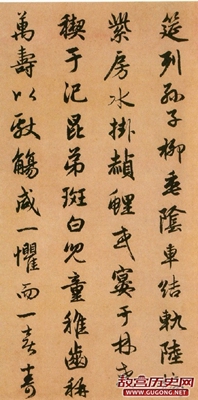 筵列孫子柳垂陰車結軌陸
紫房水掛赬鯉或宴于林或
禊于汜昆弟斑白兒童稚齒稱
萬壽以獻觴咸一懼而一喜壽
故宫历史网